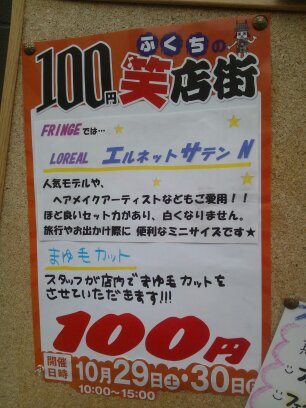 ふくちの
100円笑店街
FRINGEでは…
LOREAL エルネットサテンN
人気モデルや、
ヘアメイクアーティストなどもご愛用!!
ほど良いセット力があり、白くなりません。
旅行やお出かけ際に 便利なミニサイズです★
まゆ毛カット
スタッフが店内でまゆ毛カットを
させていただきます!!!
100円
開催日時 10月29日土・30日
10:00~15:00